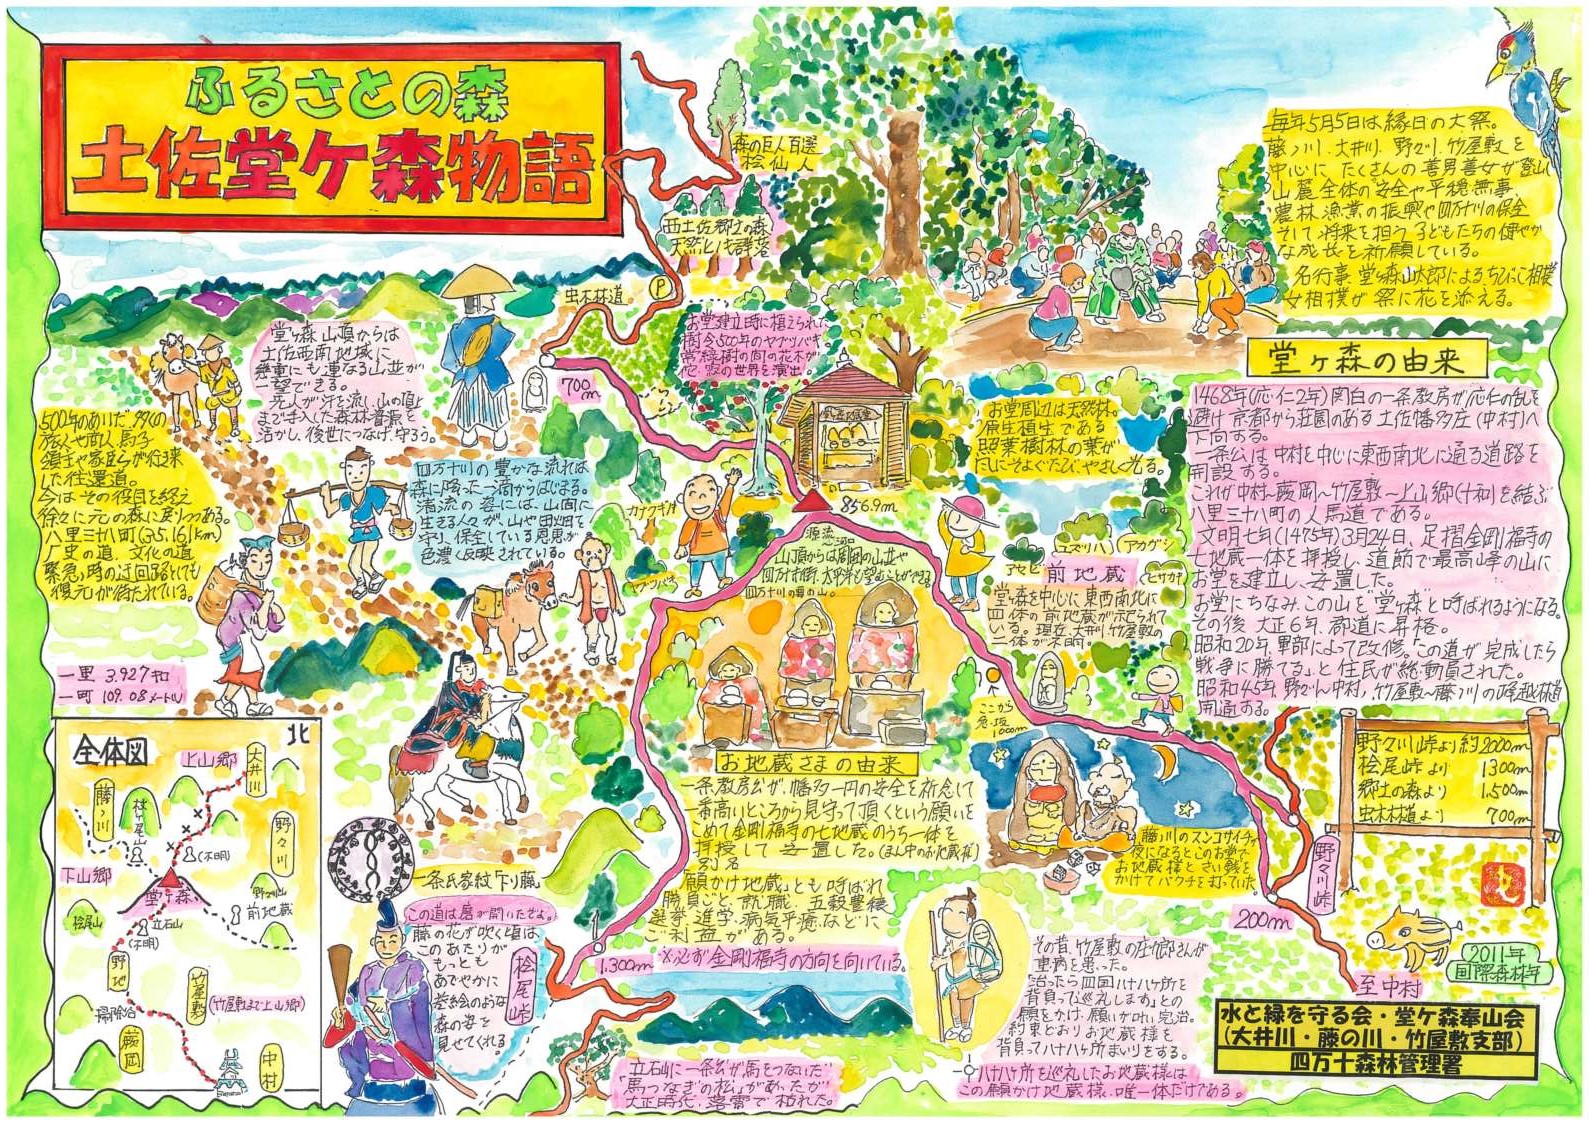 ふるさとの森
土佐堂ケ森物語
森の巨人百選
桧仙人
西土佐郷土の森
天然ヒノキ群落
虫木林道
P
700m
毎年5月5日は縁日の大祭。
藤ノ川、大井川、野々川、竹屋敷を
中心に たくさんの善男善女が登山
山麓全体の安全や平穏無事、
農林漁業の振興や四万十川の保全
そして将来を担う子どもたちの健やか
な成長を祈願している。
名行事、堂ヶ森山太郎によるちびっこ相撲
女相撲が祭に花を添える。
堂ヶ森山頂からは
土佐西南地域に
幾重にも連なる山並が
一望できる。
先人が汗を流し、山の頂上
まで手入した森林資源を
活かし、後世につなげ、守ろう。
お堂建立時に植えられた
樹令500年のヤブツバキ
常緑樹の間の花木が
他、窓の世界を演出。
500年のあいだ、多くの
旅人や商人、馬子
領主や家臣らが往来
した往還道。
今は その役目を終え
徐々に元の森に戻りつつある。
八里三十八町(35.161km)
歴史の道、文化の道
緊急時の迂回路としても
復元が待たれている。
四万十川の豊かな流れは
森に降った一滴からはじまる。
清流の姿には、山間に
生きる人々が、山や田畑を
守り、保全している恩恵が
色濃く反映されている。
お堂周辺は天然林。
原生植生である
照葉樹林の葉が
だにそよぐたび、やさしく光る。
856.9m
源流
河口
山頂からは周囲の山並や
四万十川河口、太平洋も望むことができる
四万十川の源の山。
カナクギノキ
ヤブツバキ
ユズリハ
アカガシ
アセビ
ヒサカキ
前地蔵
堂ヶ森を中心に 東西南北に
四体の前地蔵がおじられて
いる。現在、大井川、竹屋敷の
二体が不明。
ここから
急坂
1000m
堂ヶ森の由来
1468年(応仁2年)関白の一条教房が応仁の乱を
避け京都から荘園のある 土佐幡多庄(中村)へ
下向する。
一条公は中村を中心に東西南北に通る道路を
開設する。
これが中村~蕨岡~竹屋敷~上山郷(十和)を結ぶ
八里三十八町の人馬道である。
文明七年(1475年)3月24日、足摺金剛福寺の
七地蔵一体を拝授し、道筋で最高峰の山に
お堂を建立し、安置した。
お堂にちなみ、この山を"堂ヶ森"と呼ばれるようになる。
その後 大正6年、郡道に昇格。
昭和20年、軍部によって改修。「この道が完成したら
戦争に勝てる」と 住民が総動員された。
昭和45年 野々川~中村、竹屋敷~藤ノ川の峰越林道
開通する。
一里 3.927キロ
一町 109.08メートル
全体図
北
上山郷
大井川
藤ノ川
桧尾山
(不明)
野々川
下山郷
堂ヶ森
野々川山
前地蔵
立石山
(不明)
桧尾山
野地
竹屋敷
(竹屋敷まで上山郷)
掃除谷
蕨岡
中村
一条氏家紋「下り藤」
この道は磨が開いたぜよ。
藤の花が吹く頃は
このあたりが
もっとも
あでやかに
巻絵のような
森の姿を
見せてくれる。
桧尾峠
1.300m
お地蔵さまの由来
一条教房公が、幡多一円の安全を祈念して
一番高いところから見守って頂くという願いを
こめて金剛福寺の七地蔵のうち一体を
拝授して安置した。(まん中のお地蔵様)
別名
「願かけ地蔵」とも呼ばれ
勝負ごと、就職、五穀豊穣
選挙、進学、病気平癒などに
ご利益がある。
※必ず金剛福寺の方向を向いている。
藤ノ川のスンコサイチが
夜になるとこのお堂で
お地蔵様とさい銭を
かけてバクチを打っていた。
野々川峠より約2000m
桧尾峠より 1300m
郷土の森より 1.500m
虫木林道より 700m
野々川峠
200m
至中村
2011年
国際森林年
その昔、竹屋敷の庄次郎さんが
重病を患った。
「治ったら四国八十八ヶ所を
背負って巡礼します」との
願をかけ、願いが叶い完治。
約束どおりお地蔵様を
背負って八十八ヶ所まいりをする。
八十八ヶ所を巡礼したお地蔵様は
この願かけ地蔵様、唯一体だけである。
立石山に一条公が馬をつないだ
「馬つなぎの松」があったが
大正時代、落雷で枯れた。
水と緑を守る会・堂ケ森奉山会
(大井川・藤の川・竹屋敷支部)
四万十森林管理署